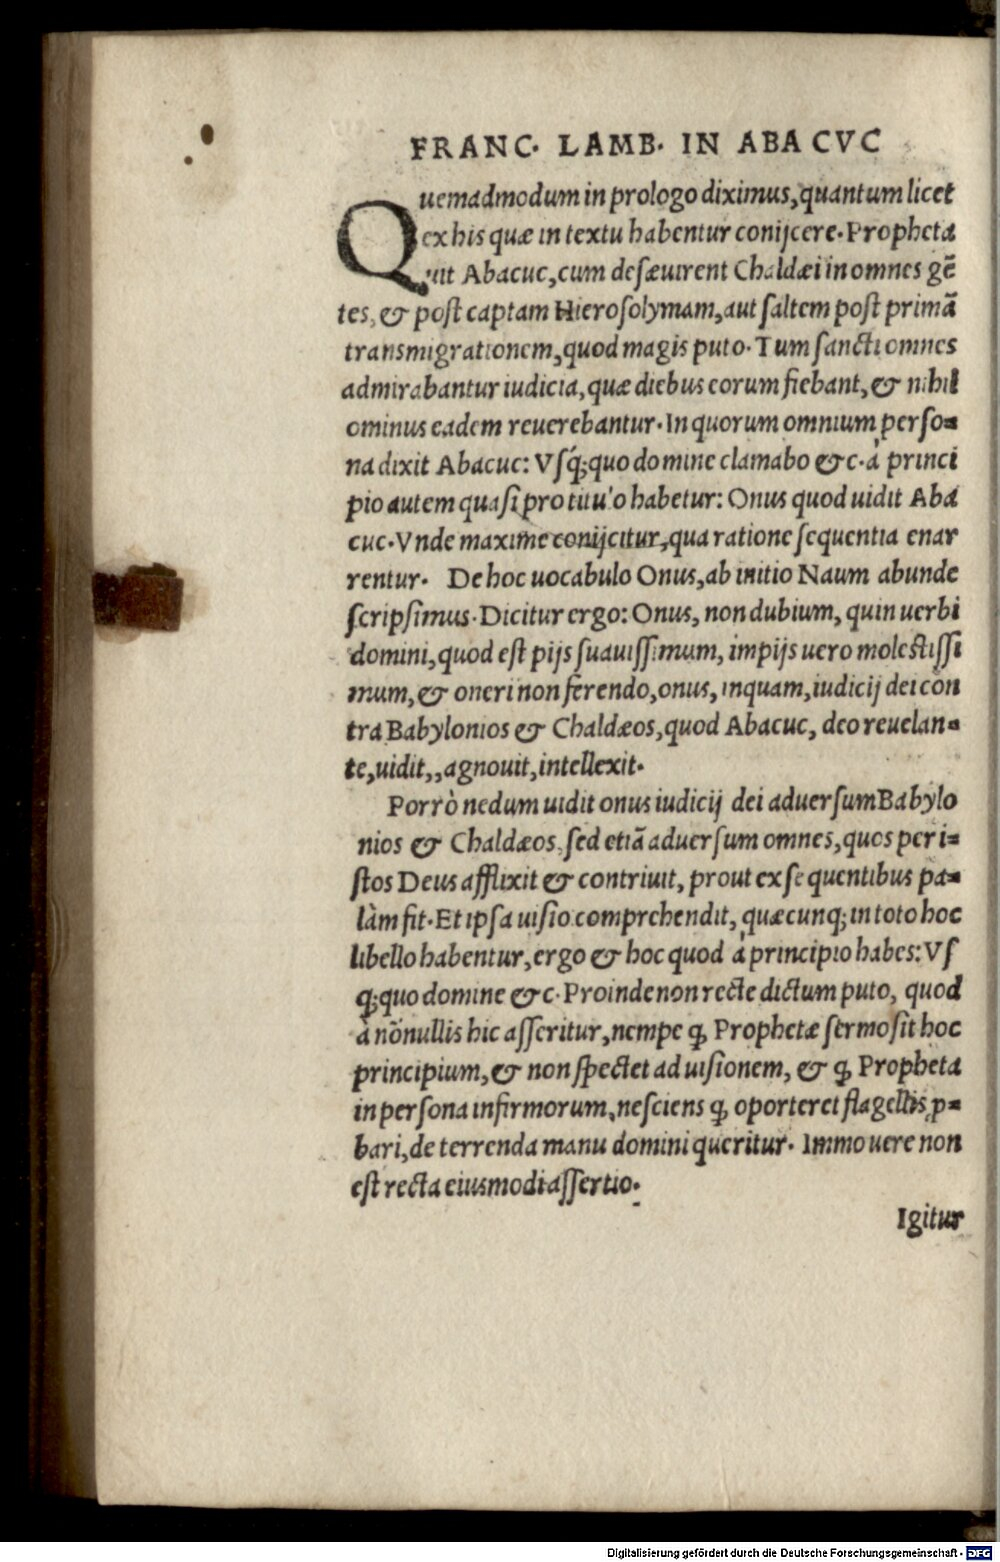 FRANC. LAMB. IN ABACVC
Quemadmodum in prologo diximus, quantum licet
ex his quæ in textu habentur conijcere. Propheta
uit Abacuc, cum desæuirent Chaldæi in omnes gē
tes, & post captam Hierosolymam, aut saltem post primā
transmigrationem, quod magis puto. Tum sancti omnes
admirabantur iudicia, quæ diebus eorum fiebant, & nihil
ominus eadem reuerebantur. In quorum omnium perso-
na dixit Abacuc: Vsq́; quo domine clamabo &c. à princi
pio autem quasi pro titulo habetur: Onus quod uidit Aba
cuc. Vnde maxime conijcitur, qua ratione sequentia enar
rentur. De hoc uocabulo Onus, ab initio Naum abunde
scripsimus. Dicitur ergo: Onus, non dubium, quin uerbi
domini, quod est pijs suauissimum, impijs uero molestissi
mum, & oneri non ferendo, onus, inquam, iudicij dei con
tra Babylonios & Chaldæos, quod Abacuc, deo reuelan-
te, uidit,, agnouit, intellexit.
Porrò nedum uidit onus iudicij dei aduersum Babylo
nios & Chaldæos, sed etiā aduersum omnes, quos per i-
stos Deus afflixit & contriuit, prout ex sequentibus pa-
làm fit. Et ipsa uisio comprehendit, quæcunq; in toto hoc
libello habentur, ergo & hoc quod à principio habes: Vs
q; quo domine &c. Proinde non recte dictum puto, quod
à nōnullis hic asseritur, nempe ꝙ Prophetæ sermo sit hoc
principium, & non spectet ad uisionem, & ꝙ Propheta
in persona infirmorum, nesciens ꝙ oporteret flagellis ꝓ-
bari, de terrenda manu domini queritur. Immo uere non
est recta eiusmodi assertio.
Igitur
Digitalisierung gefördert durch die Deutsche Forschungsgemeinschaft - DFG